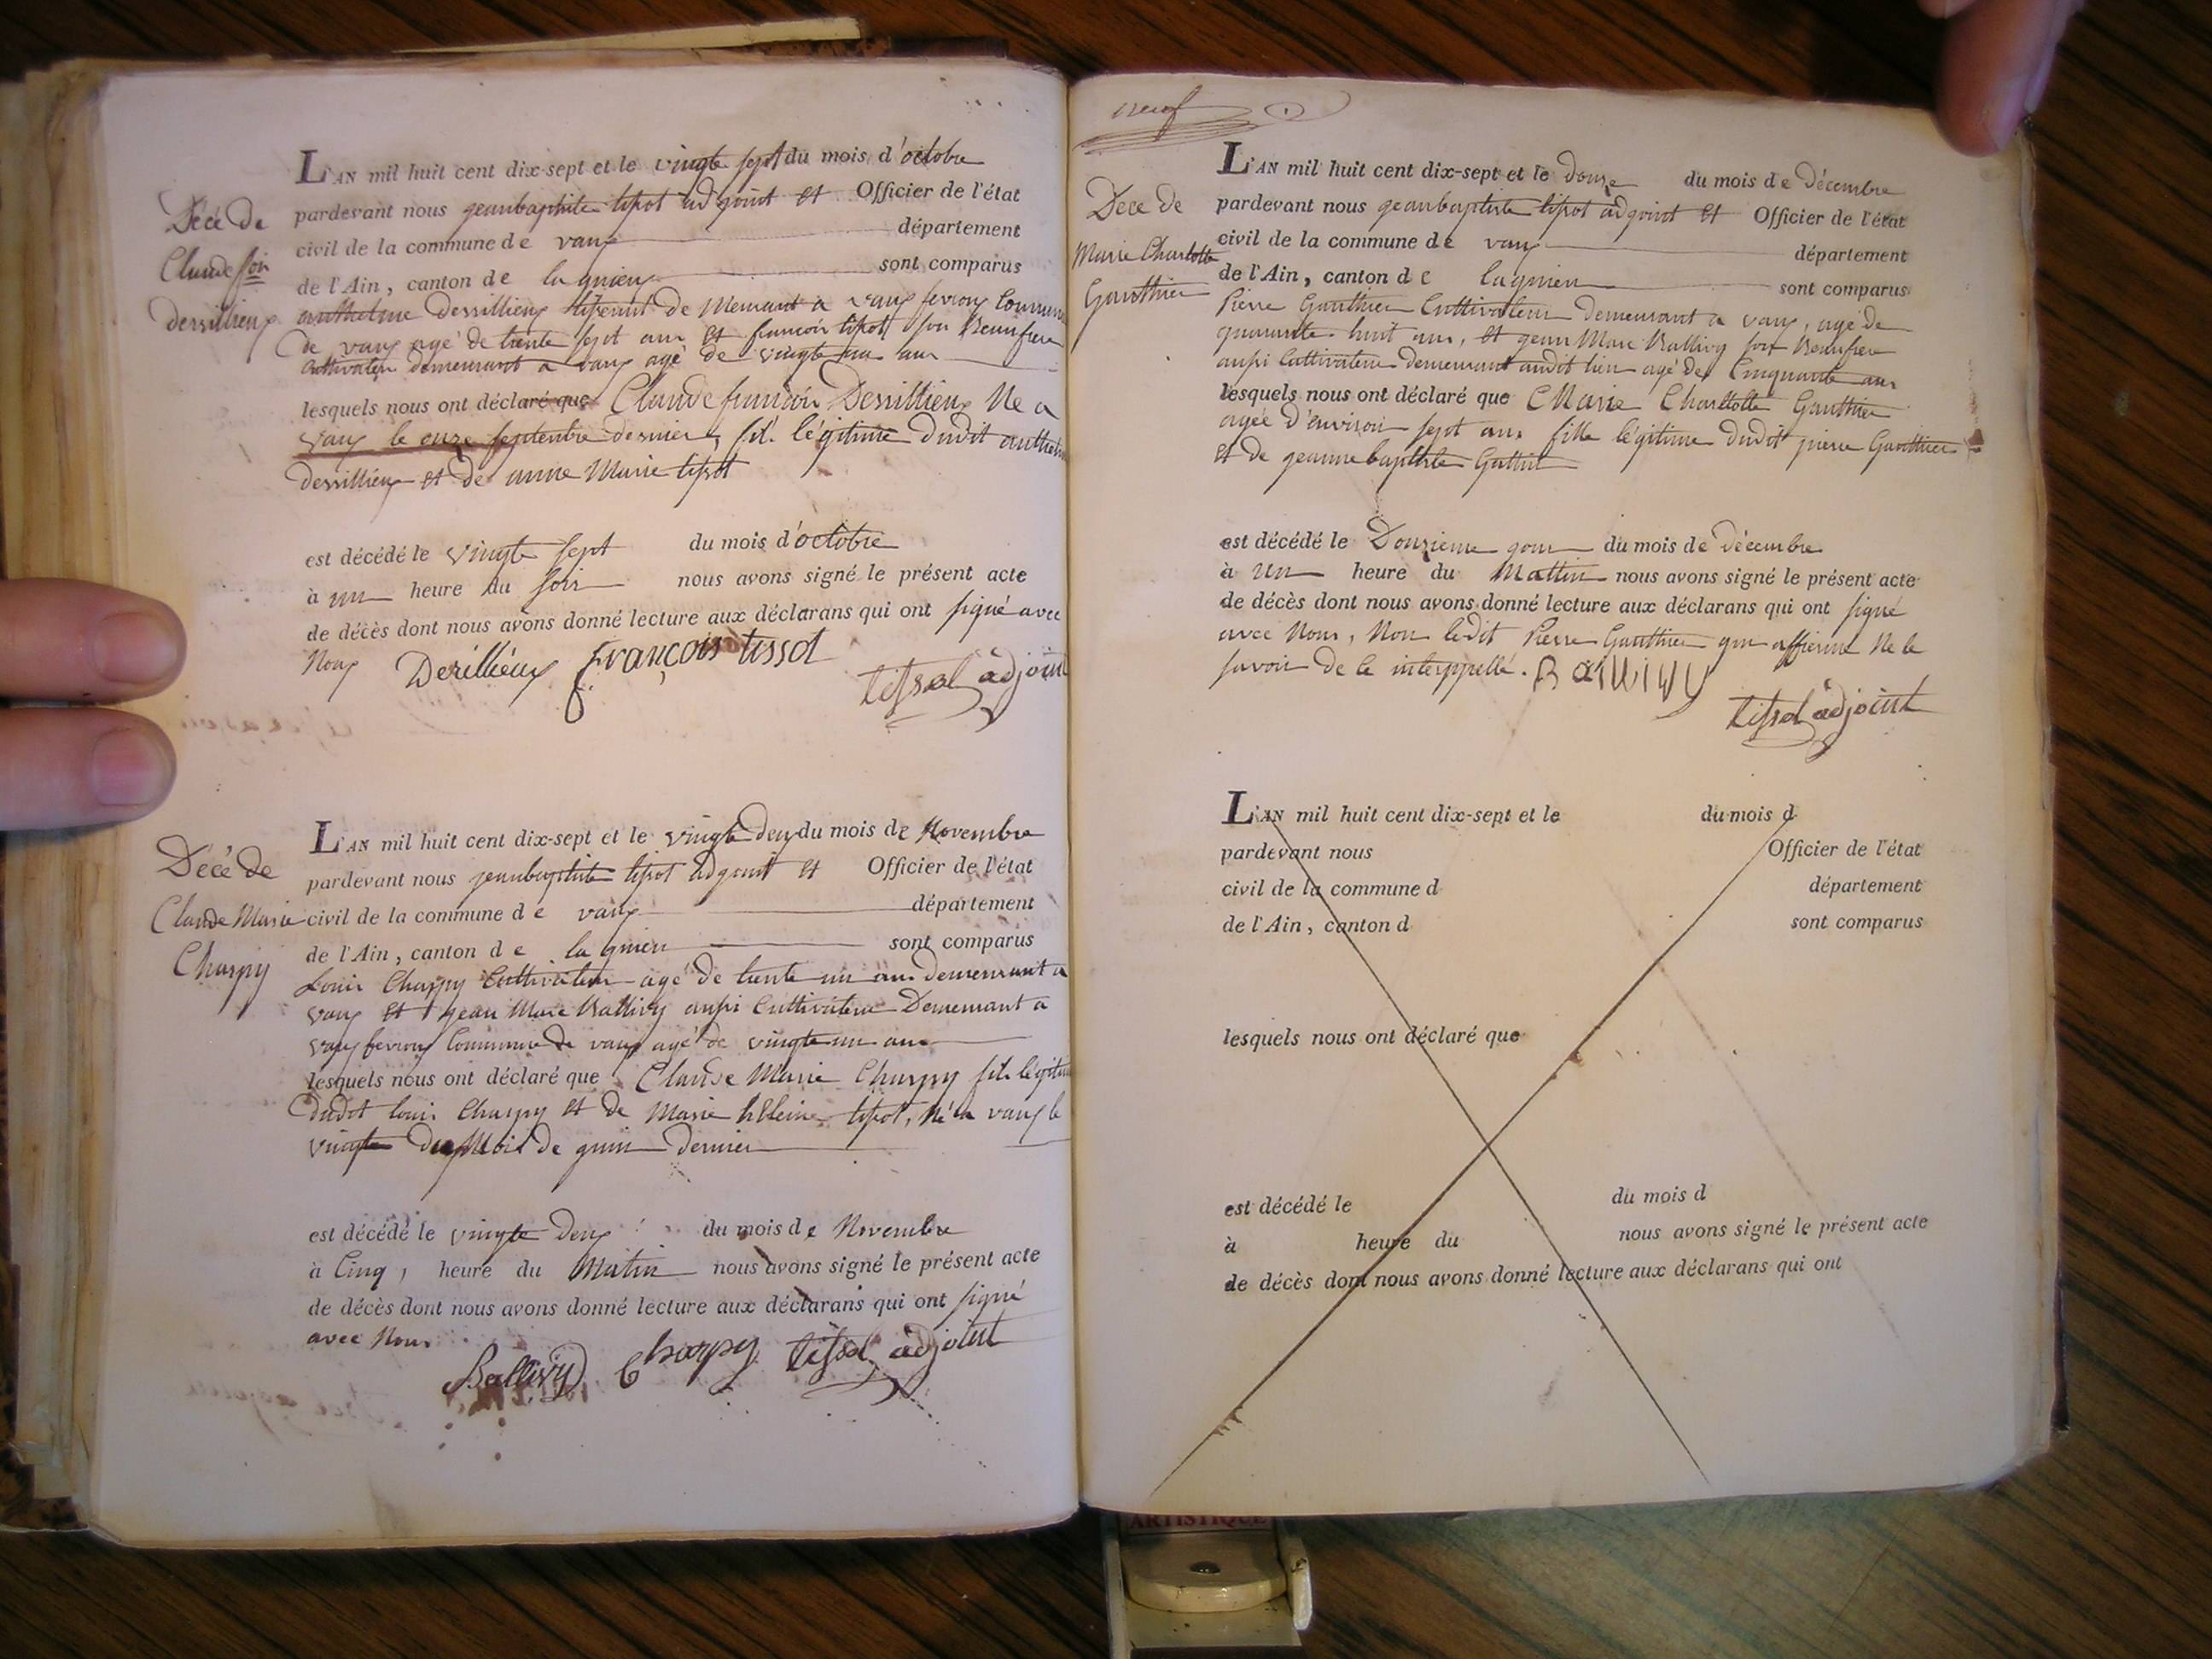 Décé de
Claude fois
dersillieux
L'AN mil huit cent dix-sept et le vingte sept du mois d'octobre
pardevant nous geanbaptiste tissot adgoint et Officier de l'état
civil de la commune de vaux département
de l'Ain, canton de lagnieux sont comparus
anthelme dersillieux demeurant a vaux fevroux commune
de vaux agé de trente sept ans et francois tissot son Beaufrere
cultivateur demeurant a vaux agé de vingte ans
lesquels nous ont déclaré que Claude francois Dersillieux Ne a
vaux le onze septembre dernier, fils légitime dudit anthelme
dersillieux et de anne Marie tissot
est décédé le vingte sept du mois d'octobre
à un heure du soir nous avons signé le présent acte
de décès dont nous avons donné lecture aux déclarans qui ont signé avec
Nous Derillieux françois tissot tissot adjoint
Décé de
Claude Marie
Charpy
L'AN mil huit cent dix-sept et le vingte deux du mois de Novembre
pardevant nous jeanbaptiste tissot adgoint et Officier de l'état
civil de la commune de vaux département
de l'Ain, canton de lagnieu sont comparus
Louis Charpy Cultivateur agé de trente un ans demeurant a
vaux et jean Marc Ballivy aussi Cultivateur Demeurant a
vaux fevroux Commune de vaux agé de vingte un ans
lesquels nous ont déclaré que Claude Marie Charpy fils légitime
dudit louis Charpy et de Marie héleine tissot, né a vaux le
vingte du Mois de guin dernier
est décédé le vingte deux du mois de Novembre
à Cinq, heure du Matin nous avons signé le présent acte
de décès dont nous avons donné lecture aux déclarans qui ont signé
avec Nous
Ballivy Charpy tissot adjoint
neuf
Dece de
Marie Charlotte
Gauthier
L'AN mil huit cent dix-sept et le douze du mois de Décembre
pardevant nous geanbaptiste tissot adgoint et Officier de l'état
civil de la commune de vaux département
de l'Ain, canton de lagnieu sont comparus
Pierre Gauthier Cultivateur demeurant a vaux, agé de
quarante huit ans, et gean Marc Ballivy son Beaufrere
aussi Cultivateur demeurant audit lieu agé de Cinquante ans
lesquels nous ont déclaré que Marie Charllotte Gauthier
agée d'environ sept ans fille légitime dudit pierre Gauthier
et de geanne baptiste
est décédé le Douzieme gour du mois de décembre
à un heure du Mattin nous avons signé le présent acte
de décès dont nous avons donné lecture aux déclarans qui ont signé
avec Nous, Non ledit Pierre Gauthier qui affirme Ne le
savoir de ce interppellé. Ballivy
tissot adjoint
L'AN mil huit cent dix-sept et le du mois d
pardevant nous Officier de l'état
civil de la commune d département
de l'Ain, canton d sont comparus
lesquels nous ont déclaré que
est décédé le du mois d
à heure du nous avons signé le présent acte
de décès dont nous avons donné lecture aux déclarans qui ont
ARTISTIQUE